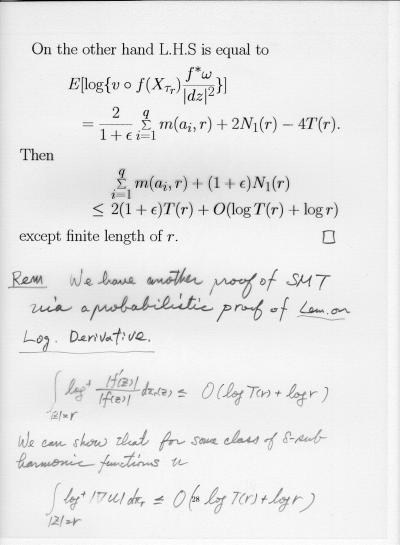 On the other hand L.H.S is equal to
E[log{v ∘ f(X_{τ_r}) f*ω/|dz|²}]
= 2/(1 + ϵ) Σ_{i=1}^{q} m(a_i, r) + 2N₁(r) − 4T(r).
Then
Σ_{i=1}^{q} m(a_i, r) + (1 + ϵ)N₁(r)
≤ 2(1 + ϵ)T(r) + O(log T(r) + log r)
except finite length of r. □
Rem We have another proof of SMT
via a probabilistic proof of Lem. on
Log. Derivative.
∫_{|z|=r} log⁺ |f'(z)|/|f(z)| dπ_r(z) ≤ O(log T(r) + log r)
We can show that for some class of δ-sub
harmonic functions u
∫_{|z|=r} log⁺ |∇u| dπ_r ≤ O(log T(r) + log r)
28